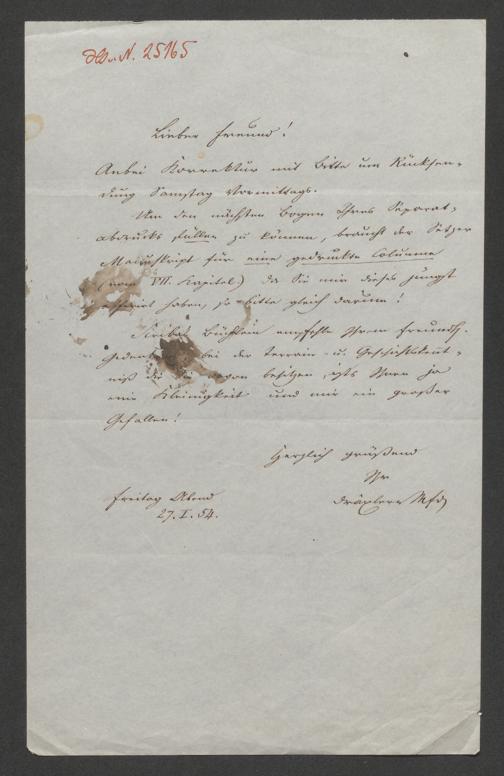 H.I.N. 25165
Lieber Freund!
Anbei Korrektur mit Bitte um Rücksen-
dung Samstag Vormittags.
Um den nächsten Bogen Ihres Separat-
abdrucks füllen zu können, braucht der Setzer
Manuskript für eine gedruckte Columne
(vom VII. Kapitel) da Sie mir dieses jüngst
haben, so bitte gleich darum!
Büchlein empfehle Ihrem freundl.
bei der Terrain- u. Geschäftskennt-
niß die Sie besitzen, ists Ihnen ja
eine Kleinigkeit und mir ein großer
Gefallen!
Herzlich grüßend
Ihr
Dräxler Mfd
Freitag Abend
27. I. 54.